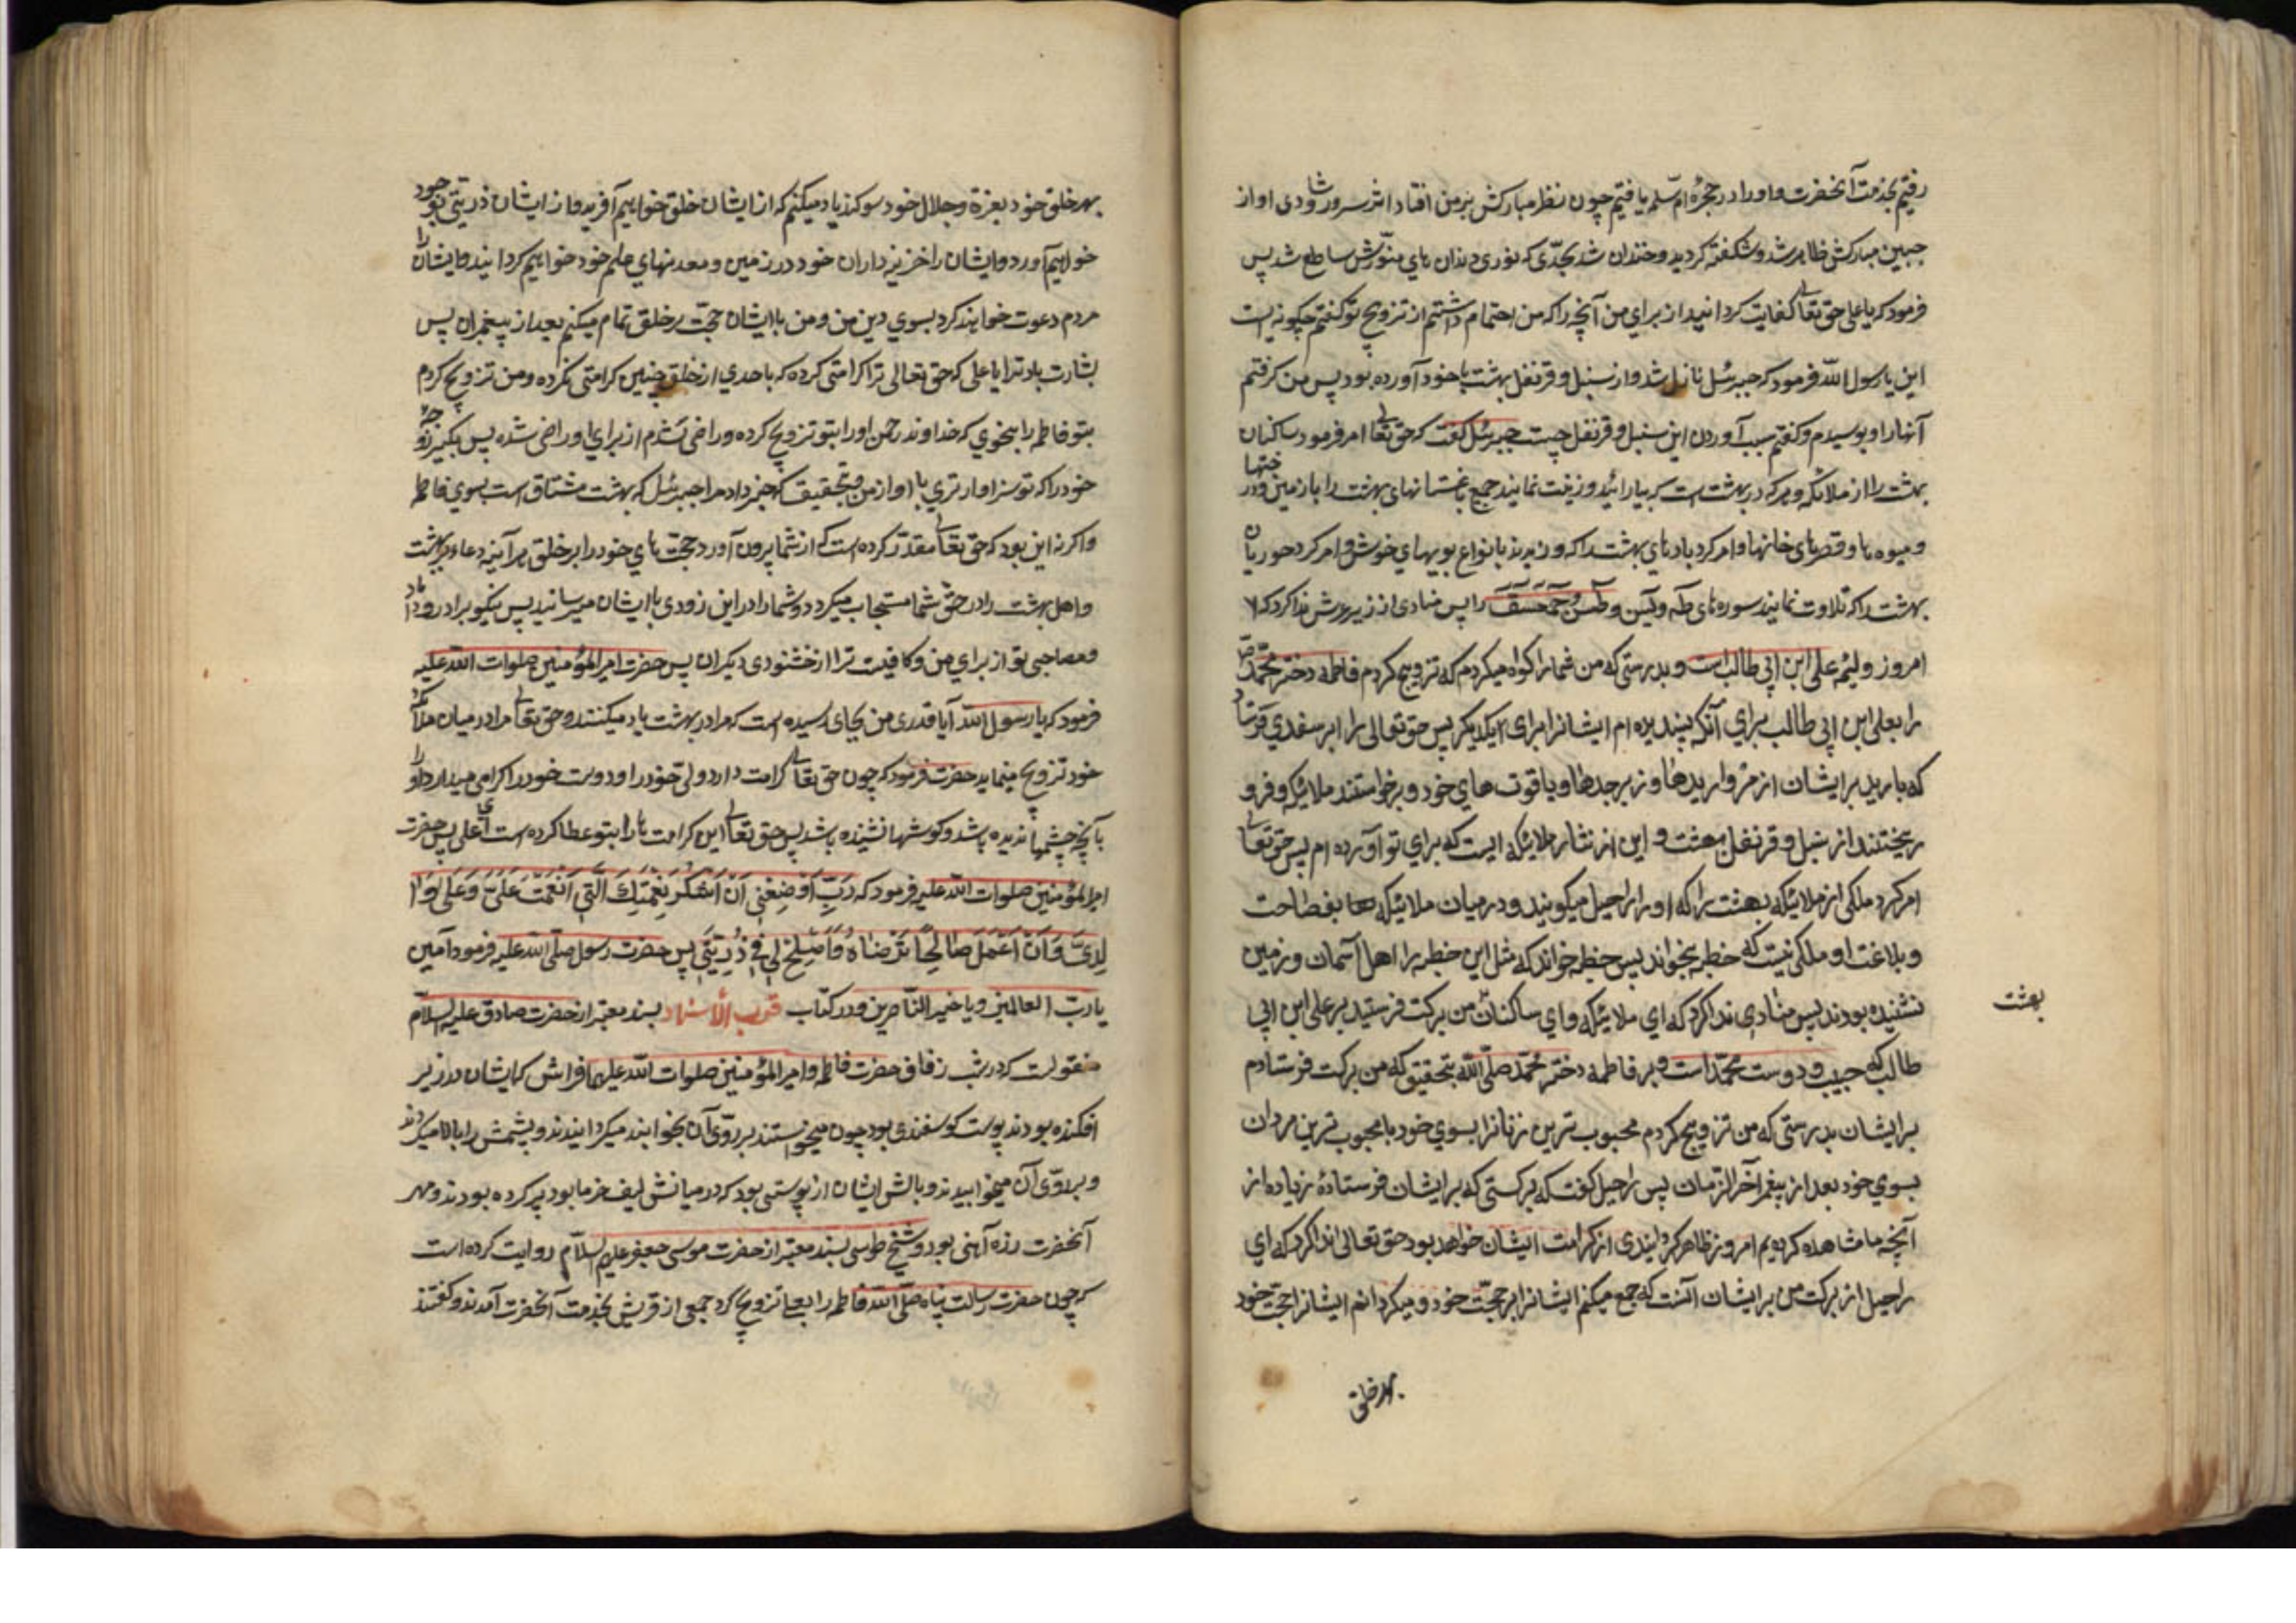 رفتیم بخدمت آنحضرت و او را در حجرهٔ ام سلمه یافتیم چون نظر مبارکش بر من افتاد اثر سرور و شادی او از
جبین مبارکش ظاهر شد و شکفته گردید و خندان شد بحدی که نوری دندان های منورش ساطع شد پس
فرمود که یا علی حق تعالی کفایت گردانید از برای من آنچه را که من اهتمام داشتم از تزویج تو گفتم چگونه است
این یا رسول الله فرمود که جبرئیل نازل شد و از سنبل و قرنفل بهشت با خود آورده بود پس من گرفتم
آنها را و بوسیدم و گفتم سبب آوردن این سنبل و قرنفل چیست جبرئیل گفت که حق تعالی امر فرمود ساکنان
بهشت را از ملائکه و هر که در بهشت است که بیارائید و زینت نمایند جمیع باغستانهای بهشت را با زمین و درختها
و میوه ها و قصرهای خانها و امر کرد بادهای بهشت را که وزیدند بانواع بویهای خوش و امر کرد حوریان
بهشت را که تلاوت نمایند سوره های طه و یس و طس و حمعسق را پس منادی از زیر عرش ندا کرد که
امروز ولیمه علی ابن ابی طالب است و بدرستی که من شما را گواه میگردم که تزویج کردم فاطمه دختر محمد ص
را بعلی ابن ابی طالب برای آنکه پسندیده ام ایشانرا برای یکدیگر پس حق تعالی را ابر سفدی فرستاد
که بارید بر ایشان از مرواریدها و زبرجدها و یاقوت های خود و برخواستند ملائکه و فرو
ریختند از سنبل و قرنفل بهشت و این از نثار ملائکه ایست که برای تو آورده ام پس حق تعالی
امر کرد ملکی از ملائکه بهشت را که او را راحیل میگویند و در میان ملائیکه ها بفصاحت
و بلاغت او ملکی نیست که خطبه بخواند پس خطبه خواند که مثل این خطبه را اهل آسمان و زمین
نشنیده بودند پس منادی ندا کرد که ای ملائیکه و ای ساکنان من برکت فرستید بر علی ابن ابی
بهشت
طالب که حبیب و دوست محمد است و بر فاطمه دختر محمد صلی الله بتحقیق که من برکت فرستادم
بر ایشان بدرستی که من تزویج کردم محبوب ترین زنانرا بسوی خود با محبوب ترین مردان
بسوی خود بعد از پیغمبر آخر الزمان پس راحیل گفت که برکتی که بر ایشان فرستادهٔ زیاده از
آنچه ما مشاهده کردیم امروز ظاهر گردانیدی از کرامت ایشان خواهد بود حق تعالی ندا کرد که ای
راحیل از برکت من بر ایشان آنست که جمع میکنم ایشانرا بر محبت خود و میگردانم ایشانرا حجت خود
بهر خلق
بهر خلق خود بعزة و جلال خود سوگند یاد میکنم که از ایشان خلق خواهیم آفرید و از ایشان ذریتی بوجود
خواهیم آورد و ایشان را خزینه داران خود در زمین و معدنهای علم خود خواهیم گردانید و ایشان را
مردم دعوت خواهند کرد بسوی دین من و من با ایشان حجت بر خلق تمام میکنم بعد از پیغمبران پس
بشارت باد ترا یا علی که حق تعالی ترا کرامتی کرده که باحدی از خلق چنین کرامتی نکرده و من تزویج کردم
بتو فاطمه را بنحوی که خداوند رحمن او را بتو تزویج کرده و راضی شدم از برای او راضی شده پس بگیر زوجهٔ
خود را که تو سزاوارتری با او از من و بتحقیق که خبر داد مرا جبرئیل که بهشت مشتاق است بسوی فاطمه
و اگر نه این بود که حق تعالی مقدر کرده است که از شما بیرون آورد حجت های خود را بر خلق هر آینه دعاء بهشت
و اهل بهشت را در حق شما مستجاب میکرد و شما را در این زودی با ایشان میرسانید پس نیکو برادر و داماد
و مصاحبی تو از برای من و کافیست ترا از خشنودی دیگران پس حضرت امیر المؤمنین صلوات الله علیه
فرمود که یا رسول الله آیا قدری من بجای رسیده است که مرا در بهشت یاد میکنند و حق تعالی مرا در میان ملائکه
خود تزویج مینماید حضرت فرمود که چون حق تعالی کرامت دارد ولی خود را و دوست خود را گرامی میدارد او را
بآنچه چشمها ندیده باشد و گوشها نشنیده باشد پس حق تعالی این کرامت ها را بتو عطا کرده است ای علی پس حضرت
امیر المؤمنین صلوات الله علیه فرمود که رَبِّ اَوْضِعْنِی اَنْ اَشْکُرَ نِعْمَتَکَ الَّتِی اَنْعَمْتَ عَلَیَّ وَعَلَی وٰا
لِدَیَّ وَاَنْ اَعْمَلَ صٰالِحًا تَرْضٰاهُ وَاَصْلِحْ لِی فِی ذُرِّیَّتِی پس حضرت رسول صلی الله علیه فرمود آمین
یا رب العالمین و یا خیر الناصرین و در کتاب قرب الأسناد بسند معتبر از حضرت صادق علیه السلام
منقولست که در شب زفاف حضرت فاطمه و امیر المؤمنین صلوات الله علیهما فراش که ایشان در زیر
افکنده بودند پوست گوسفندی بود چون میخواستند بر روی آن بخوابند میگردانیدند و پشمش را بالا میکردند
و بر روی آن میخوابیدند و بالش ایشان از پوستی بود که در میانش لیف خرما بود پر کرده بودند و مهر
آنحضرت زره آهنی بود و شیخ طوسی بسند معتبر از حضرت موسی جعفر علیهم السلام روایت کرده است
که چون حضرت رسالت پناه صلی الله فاطمه را بعلی تزویج کرد جمعی از قریش بخدمت آنحضرت آمدند و گفتند